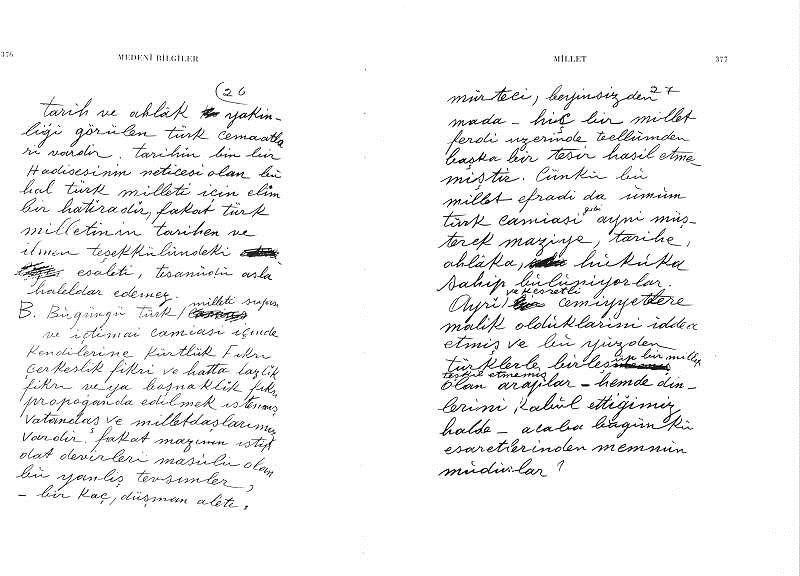 376
MEDENÎ BİLGİLER
26
tarih ve ahlâk yakin-
liği görülen türk cemaatla
ri vardır. tarihin bin bir
Hadisesinin neticesi olan bu
hal türk milleti için elim
bir hatiradır, fakat türk
milletinin tarihen ve
ilmen teşekkülündeki
esaleti, tesanüdü asla
haleldar edemez.
B. Bugünkü Türk milleti siyasi
ve içtimai camiasi içinde
kendilerine kürtlük fikri
çerkeslik fikri ve hatta lazlik
fikri ve ya boşnaklik fikri
propoğanda edilmek istenmiş
vatandaş ve milletdaşlarımız
vardir. fakat mazinin istib
dat devirleri masûlu olan
bu yanliş tevsimler,
- bir kaç, düşman aleti,
MİLLET
377
27
mürteci, beyinsizden
mada - hiç bir millet
ferdi üzerinde teellümden
başka bir tesir hasil etme
miştir. Çünkü bu
millet efradi da ümüm
türk camiasi gibi ayni müş-
terek maziye, tarihe,
ahlâka, hükûka
sahip bulunuyorlar.
Ayrı ve kesretli cemiyyetlere
malik olduklarini iddea
etmiş ve bu yüzden
türklerle birleşüp bir millet
teşkil etmemiş
olan araplar - hemde din-
lerini kabûl ettiğimiz
halde - acaba bugün kü
esaretlerinden memnun
mudurlar?